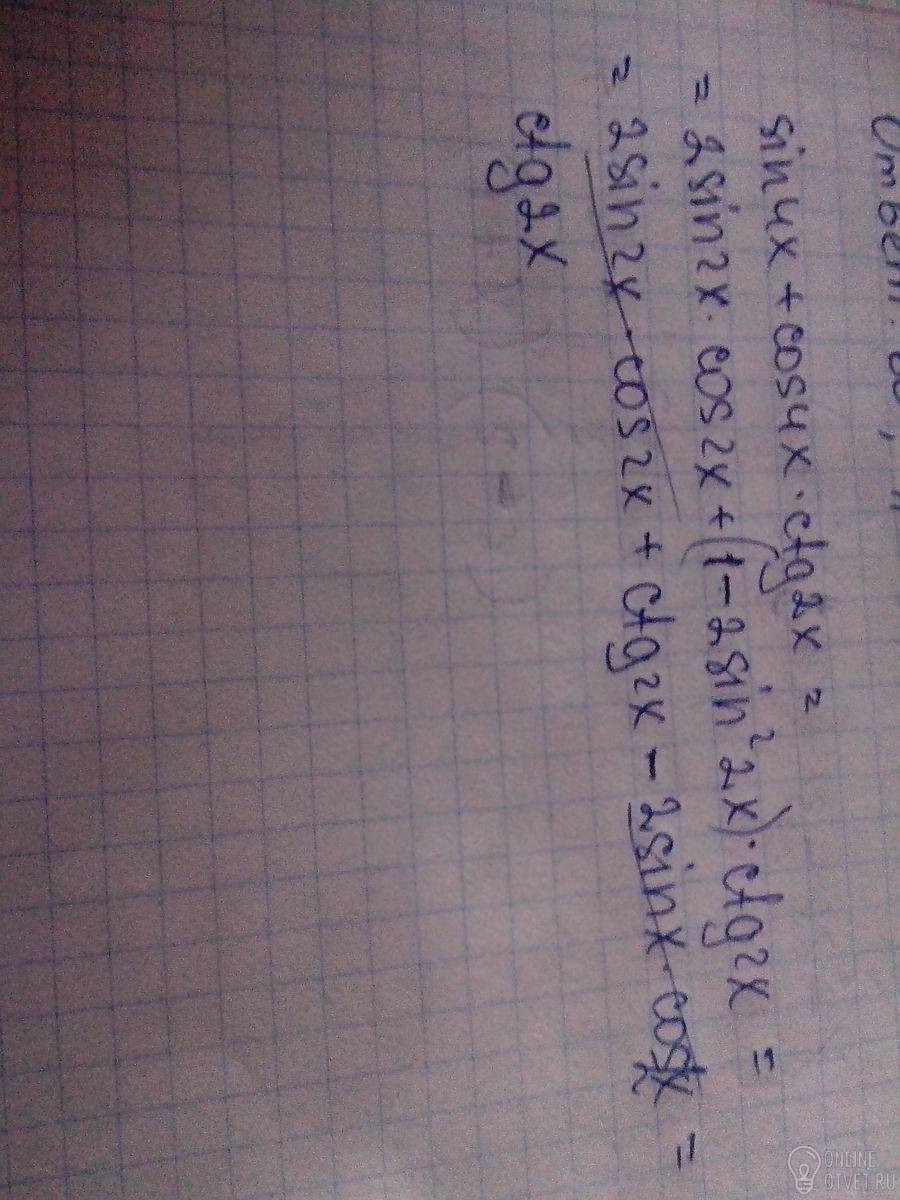 Ответ:
sin4x + cos4x · ctg2x =
= 2sin2x · cos2x + (1 - 2sin² 2x) · ctg2x =
= 2sin2x · cos2x + ctg2x - 2sinx · cos2x =
ctg2x
ONLINE
OTVET.RU